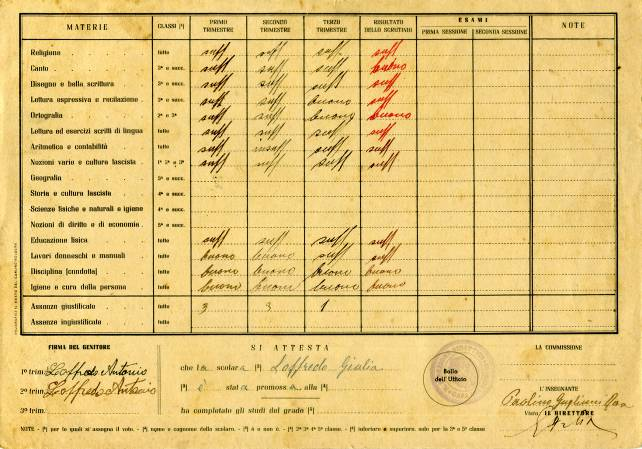 MATERIE CLASSI [¹] PRIMO TRIMESTRE SECONDO TRIMESTRE TERZO TRIMESTRE RISULTATO DELLO SCRUTINIO ESAMI PRIMA SESSIONE SECONDA SESSIONE NOTE
Religione tutte suff suff suff suff
Canto 3ª e succ. suff suff suff buono
Disegno e bella scrittura 2ª e succ. suff suff suff suff
Lettura espressiva e recitazione 2ª e succ. suff suff buono suff
Ortografia 2ª e 3ª suff suff buono buono
Lettura ed esercizi scritti di lingua tutte suff suff suff suff
Aritmetica e contabilità tutte suff insuff suff suff
Nozioni varie e cultura fascista 1ª 2ª e 3ª suff suff suff suff
Geografia
Storia e cultura fascista 4ª e succ.
Scienze fisiche e naturali e igiene 4ª e succ.
Nozioni di diritto e di economia
Educazione fisica tutte suff suff suff suff
Lavori donneschi e manuali tutte buono buono suff suff
Disciplina [condotta] tutte buono buono buono buono
Igiene e cura della persona tutte buono buono buono buono
Assenze giustificate tutte 3 3 1
Assenze ingiustificate tutte
FIRMA DEL GENITORE
1º trim. Loffredo Antonio
2º trim. Loffredo Antonio
3º trim.
SI ATTESTA
che la scolara Loffredo Giulia
[²] è stata promossa alla [³]
ha completato gli studi del grado [⁴]
Bollo dell'Ufficio
LA COMMISSIONE
L'INSEGNANTE
Paolino
Visto, IL DIRETTORE
NOTE - [¹] per le quali si assegna il voto. [²] nome e cognome dello scolaro. [³] è o non è. [⁴] 2ª 3ª 4ª 5ª classe. [⁵] inferiore o superiore, solo per la 3ª e 5ª classe